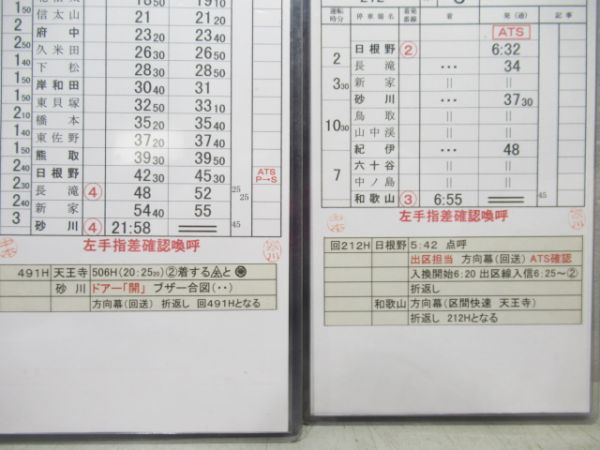 1 50 信太山 21 21
2 府中 23 50 24 20
久米田 26 50
下松 28 30 28 50
3 岸和田 30 40 31
1 50 東貝塚 32 50 33 10
2 10 橋本 35 20 35 40
東佐野 37 20 37 40
熊取 39 30 39 50
日根野 42 30 45 30 ATS P→S
2 30 長滝 ④ 48 52 25
新家 54 40 55
3 砂川 ④ 21:58 45
左手指差確認喚呼
491H 天王寺 506H(20:25 20)②着する
砂川 ドアー「開」 ブザー合図(・・)
方向幕(回送) 折返し 回491Hとなる
212
運転時分 停車場名 着発番線 着 発(通) 記事
ATS
日根野 ② 6:32
2 長滝 ・・・ 34
3 30 新家 || ||
砂川 ・・・ 37 30
鳥取 || ||
10 30 山中渓 || ||
紀伊 ・・・ 48
六十谷 || ||
7 中ノ島 || ||
和歌山 ③ 6:55 45
左手指差確認喚呼
回212H 日根野 5:42 点呼
出区担当 方向幕(回送) ATS確認
入換開始6:20 出区線入信6:25~②
折返し
和歌山 方向幕(区間快速 天王寺)
折返し 212Hとなる